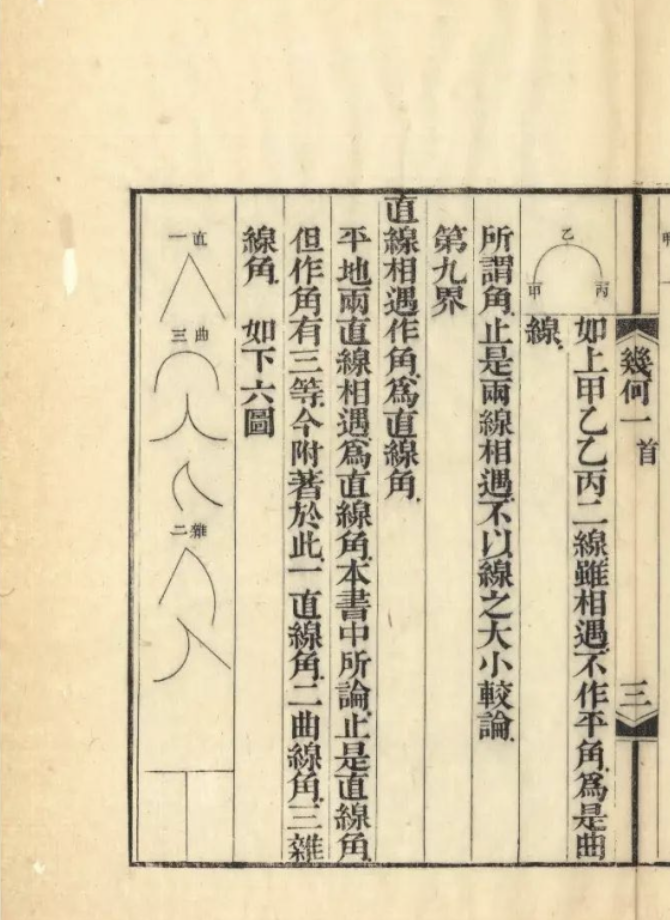 幾何一首
三
乙
丙
甲
如上甲乙乙丙二線、雖相遇、不作平角、爲是曲
線、
所謂角、止是兩線相遇、不以線之大小較論、
第九界
直線相遇作角、爲直線角、
平地兩直線相遇、爲直線角、本書中所論、止是直線角、
但作角有三等、今附著於此、一直線角、二曲線角、三雜
線角、 如下六圖
直一
曲三
雜二